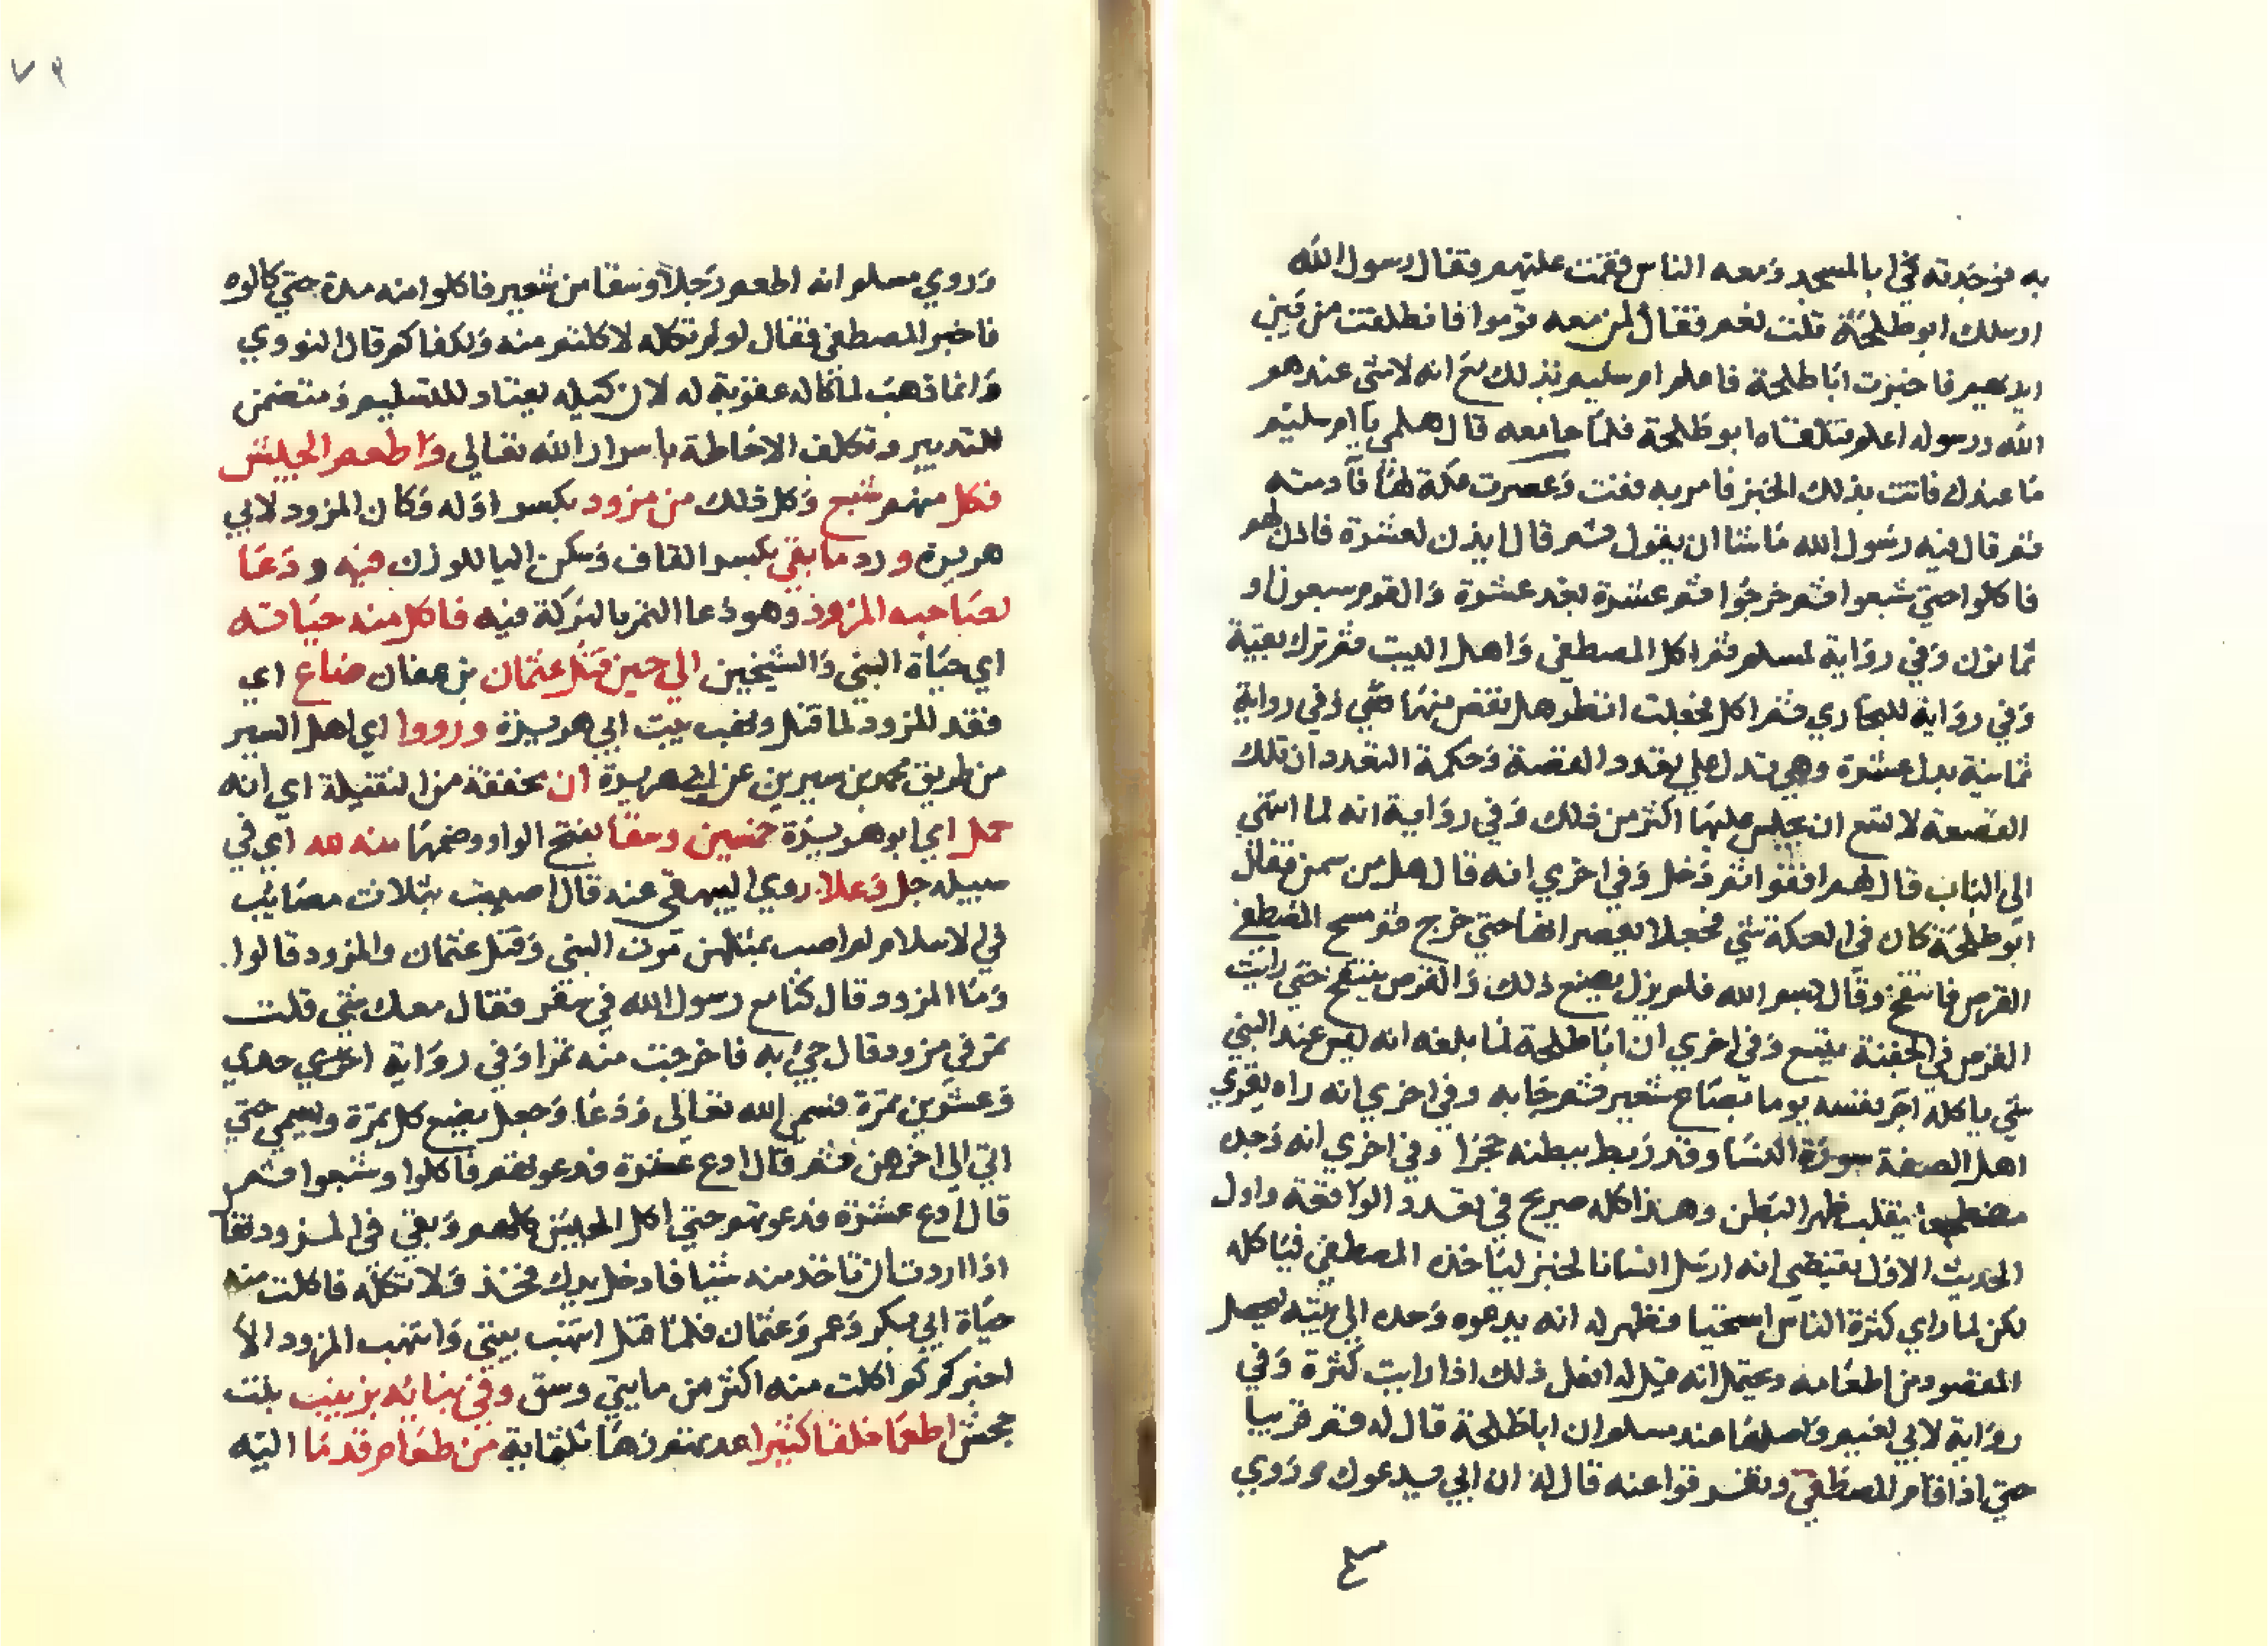 به فوجدته في المسجد ومعه الناس فقمت عليهم فقال رسول الله
ارسلك ابوطلحة قلت نعم فقال لمن معه قوموا فانطلقت من بين
ايديهم فاخبرت اباطلحة فاعلم ام سليم بذلك مع انه لاشي عندهم
الله ورسوله اعلم فتلقاه ابوطلحة فلما جا معه قال هلمي يا ام سليم
ما عندك فاتت بذلك الخبز فامر به ففت وعصرت عكة لها فآدمته
ثم قال فيه رسول الله ماشا ان يقول ثم قال ايذن لعشرة فاذن لهم
فاكلوا حتي شبعوا ثم خرجوا ثم عشرة بعد عشرة والقوم سبعون او
ثمانون وفي رواية لمسلم ثم اكل المصطفي واهل البيت ثم ترك بقية
وفي رواية للبخاري ثم اكل فجعلت انظر هل نقص منها شي وفي رواية
ثمانية بدل عشرة وهي تدل علي تعدد القصة وحكمة التعدد ان تلك
القصعة لا تسع ان يجلس عليها اكثر من ذلك وفي رواية انه لما انتهي
الي الباب قال لهم اقفوا ثم دخل وفي اخري انه قال هل من سمن فقال
ابوطلحة كان في العكة شي فجعلا يعصرانها حتي خرج ثم مسح المصطفي
القرص فانتفخ وقال بسم الله فلم يزل يصنع ذلك والقرص ينتفخ حتي رايت
القرص في الجفنة يتسع وفي اخري ان اباطلحة لما بلغه انه ليس عند النبي
شي ياكله اجر نفسه يوما بصاع شعير ثم جا به وفي اخري انه راه يقري
اهل الصفة سورة النسا وقد ربط ببطنه حجرا وفي اخري انه وجده
مضطجعا يتقلب ظهر البطن وهذا كله صريح في تعدد الواقعة واول
الحديث الاول يقتضي انه ارسل انسا بالخبز لياخذه المصطفي فياكله
لكن لما راي كثرة الناس استحيا فظهر له انه يدعوه وحده الي بيته ليحصل
المقصود من اطعامه ويحتمل انه قيل له افعل ذلك اذا رايت كثرة وفي
رواية لابي نعيم واصلها عند مسلم ان اباطلحة قال له قم قريبا
حتي اذا قام المصطفي وتفرقوا عنه قال له ان ابي يدعوك وروي
٧٩
وروي مسلم انه اطعم رجلا وسقا من شعير فاكلوا منه مدة حتي كالوه
فاخبر المصطفي فقال لو لم تكله لاكلتم منه ولكفاكم قال النووي
وانما ذهب لما كاله عقوبة له لان كيله يضاد للتسليم ومتضمن
للتدبير وتكلف الاحاطة باسرار الله تعالي واطعم الجيش
فكل منهم شبع وكل ذلك من مزود بكسر اوله وكان المزود لابي
هريرة ورد ما بقي بكسر القاف وسكن اليا للوزن فيه ودعا
لصاحبه المزود وهو دعا التمر بالبركة فيه فاكل منه حياته
اي حياة النبي والشيخين الي حين قتل عثمان بن عفان ضاع اي
فقد المزود لما قتل ونهب بيت ابي هريرة ورووا اي اهل السير
من طريق محمد بن سيرين عن ابي هريرة ان مخففة من الثقيلة اي انه
حمل اي ابوهريرة خمسين وسقا بفتح الواو وضمها منه لله اي في
سبيله جل وعلا روي البيهقي عنه قال اصبت بثلاث مصايب
في الاسلام لم اصب بمثلهن موت النبي وقتل عثمان والمزود قالوا
وما المزود قال كنا مع رسول الله في سفر فقال معك شي قلت
تمر في مزود قال جئ به فاخرجت منه تمرا وفي رواية اخري احدي
وعشرين تمرة فسمي الله تعالي ودعا وجعل يضع كل تمرة ويسمي حتي
اتي الي اخرهن ثم قال ادع عشرة فدعوتهم فاكلوا وشبعوا ثم
قال ادع عشرة فدعوتهم حتي اكل الجيش كلهم وبقي في المزود فقال
اذا اردت ان تاخذ منه شيا فادخل يدك فخذ ولا تكله فاكلت منه
حياة ابي بكر وعمر وعثمان فلما قتل انتهب بيتي وانتهب المزود الا
اخبركم كم اكلت منه اكثر من مايتي وسق وفي بنائه بزينب بنت
جحش اطعما خلقا كثيرا عدتهم زها ثلثماية من طعام قدما اليه